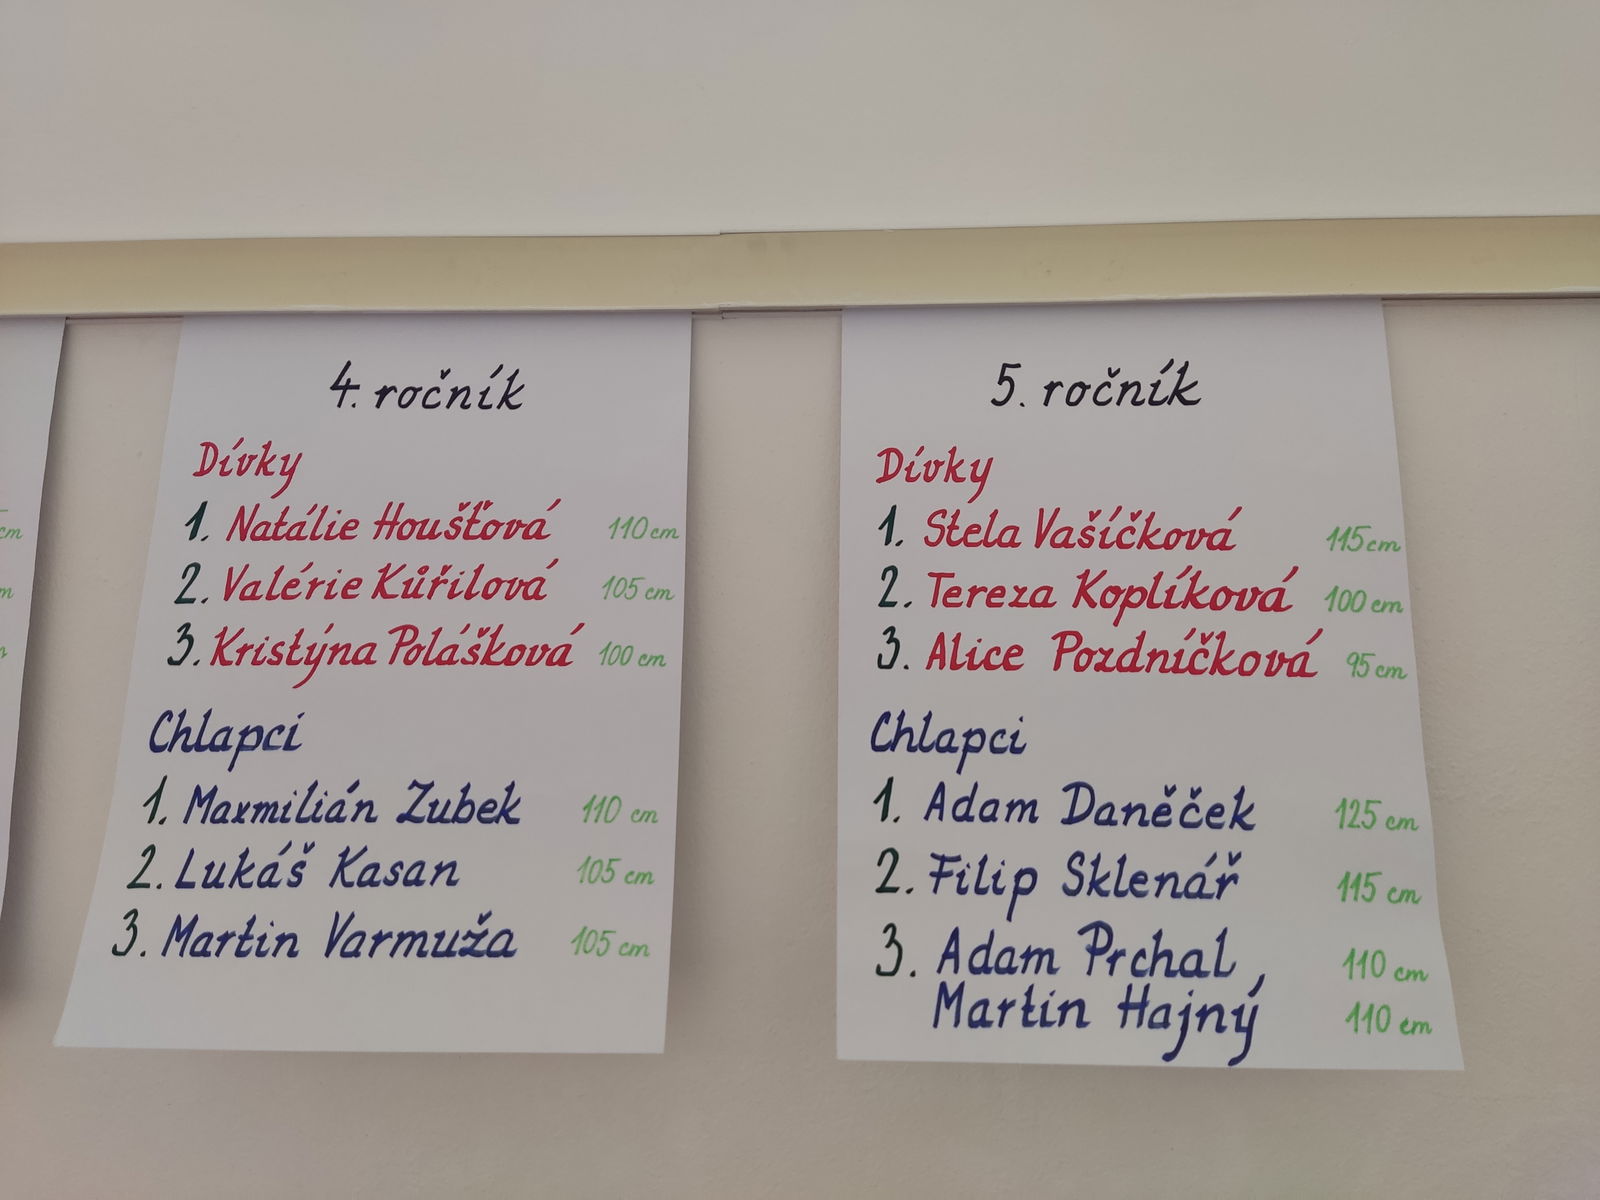 4. ročník
Dívky
1. Natálie Houšťová 110 cm
2. Valérie Kůřilová 105 cm
3. Kristýna Polášková 100 cm
Chlapci
1. Maxmilián Zubek 110 cm
2. Lukáš Kasan 105 cm
3. Martin Varmuža 105 cm
5. ročník
Dívky
1. Stela Vašíčková 115 cm
2. Tereza Koplíková 100 cm
3. Alice Pozdníčková 95 cm
Chlapci
1. Adam Daněček 125 cm
2. Filip Sklenář 115 cm
3. Adam Prchal, 110 cm
Martin Hajný 110 cm